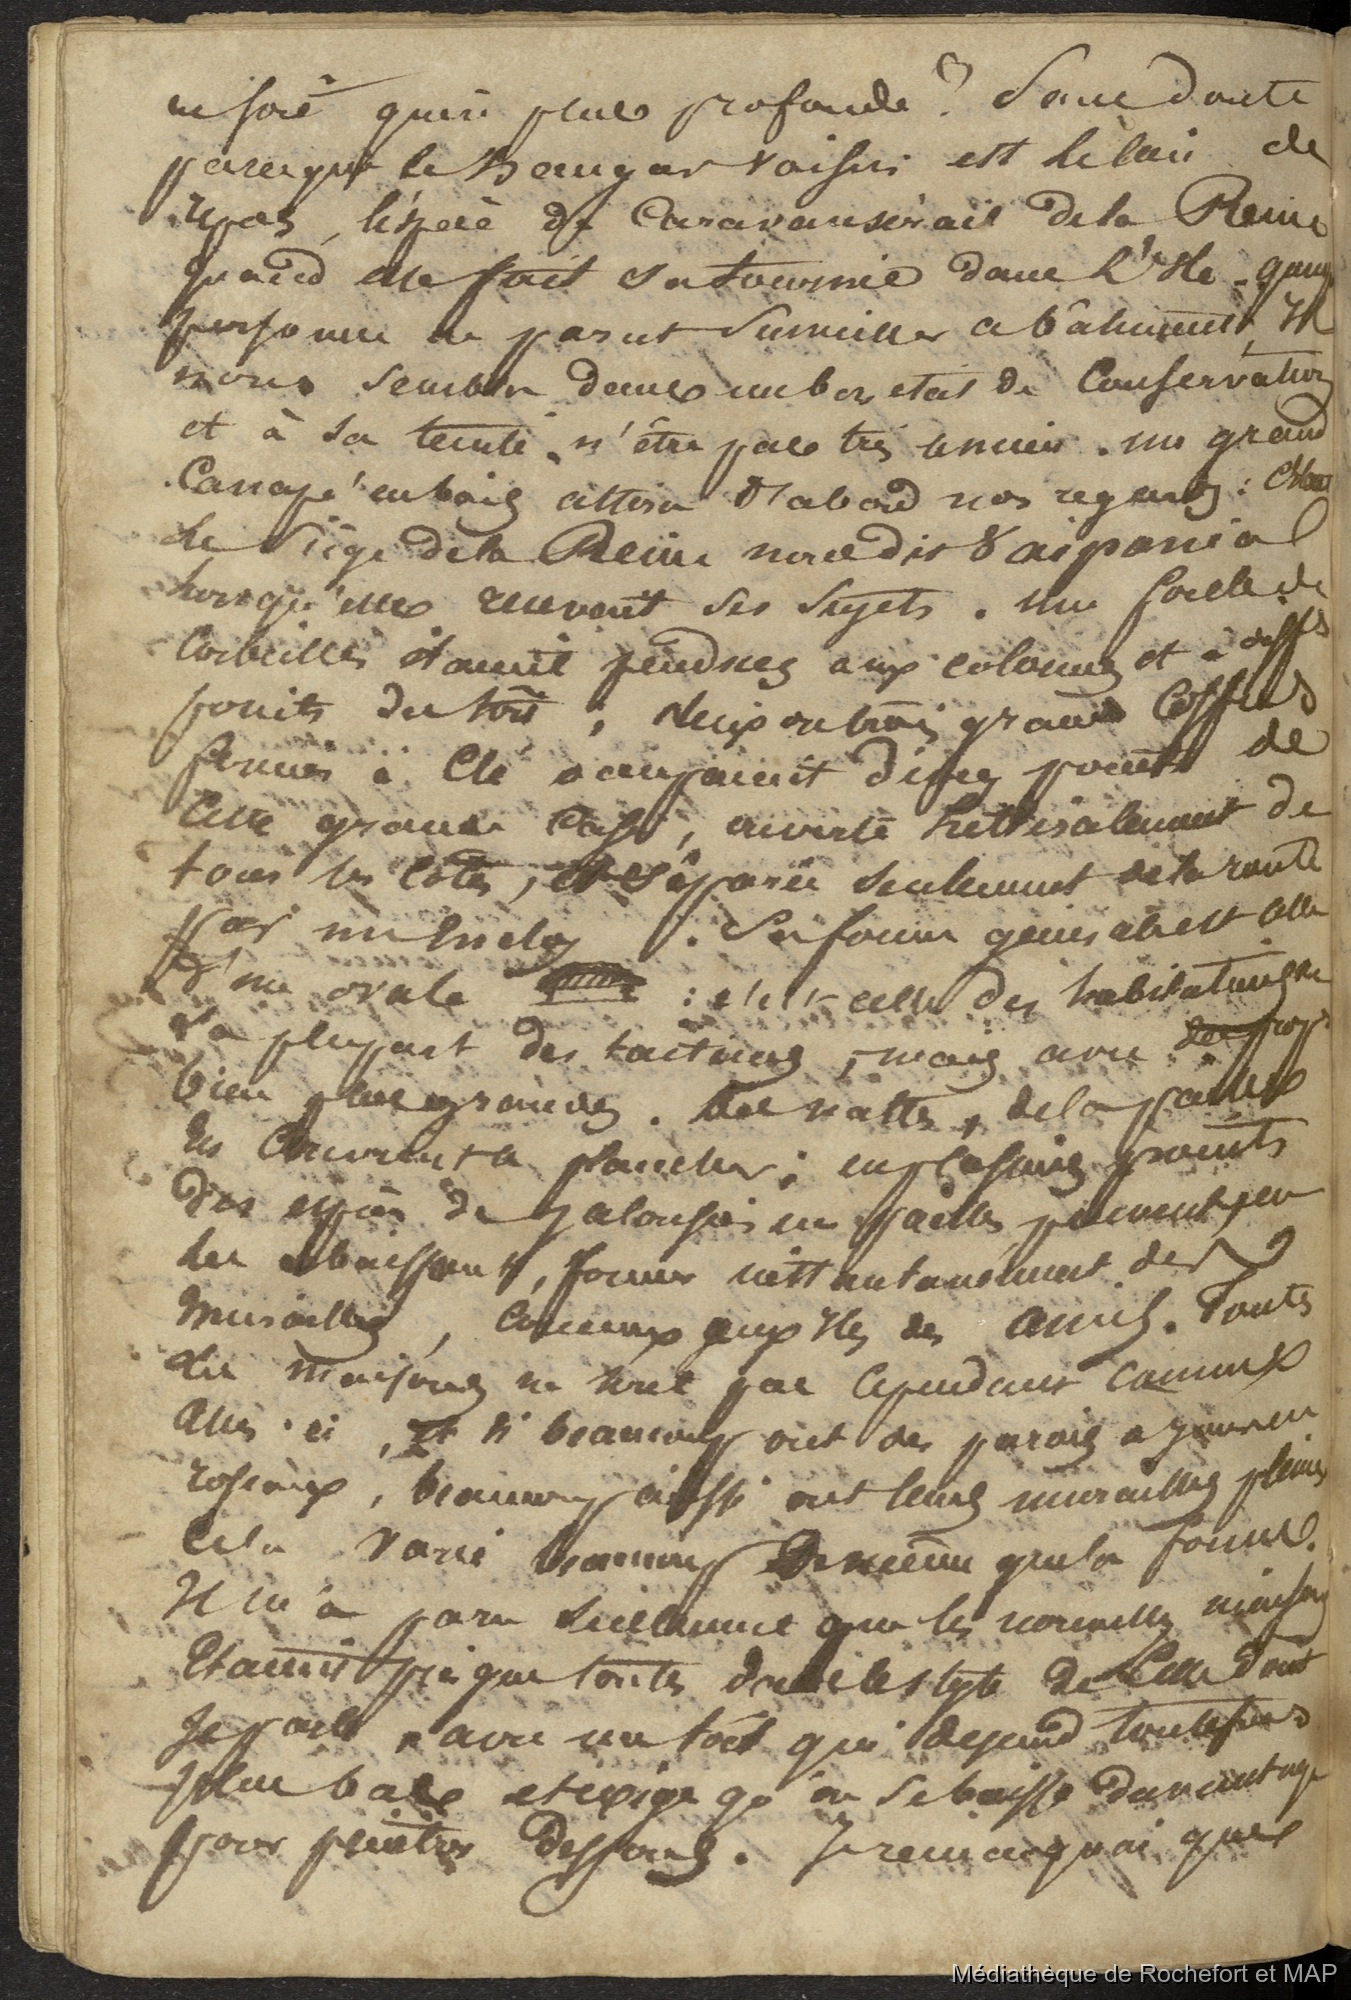 plus profonde ? Sans doute
parceque le hangar voisin est le lieu de
repos, l'espèce de Caravanserail de la Reine
quand elle fait sa tournée dans l'Ile. quoique
personne ne parut surveiller ce bâtiment, Il
nous sembla dans un bon etat de Conservation
et à sa teinte n'être pas très ancien. un grand
Canapé en bois attira d'abord nos regards : C'était
le Siège de la Reine nous dit Vaipania
lorsqu'elle recevait ses sujets. une foule de
Corbeilles étaient pendues aux colonnes et à diffts
points du toit ; deux ou trois grands Coffres
fermés à Clé occupaient divers points de
Cette grande Case, ouverte littéralement de
tous les côtés, et séparée seulement de la route
par un enclos. Sa forme générale est celle
d'un ovale : c'est celle des habitations de
la plupart des taïtiens, mais avec des prop.
bien plus grandes. Des nattes, de la paille
en Couvrent le plancher ; en plusieurs points
des espèces de jalousies en paille peuvent, en
les abaissant, former instantanément des
murailles, Comme aux Iles des amis. Toutes
les maisons ne sont pas Cependant Comme
Celles-ci, Et si beaucoup ont des parois à jour en
roseaux, beaucoup aussi ont leurs murailles pleines
Cela varie beaucoup de même que la forme.
Il m'a paru seulement que les nouvelles maisons
Etaient presque toutes dans le style de Celle dont
Je parle, avec un toit qui descend toutefois
plus bas et exige qu'on se baisse davantage
pour pénétrer dessous. Je remarquai que